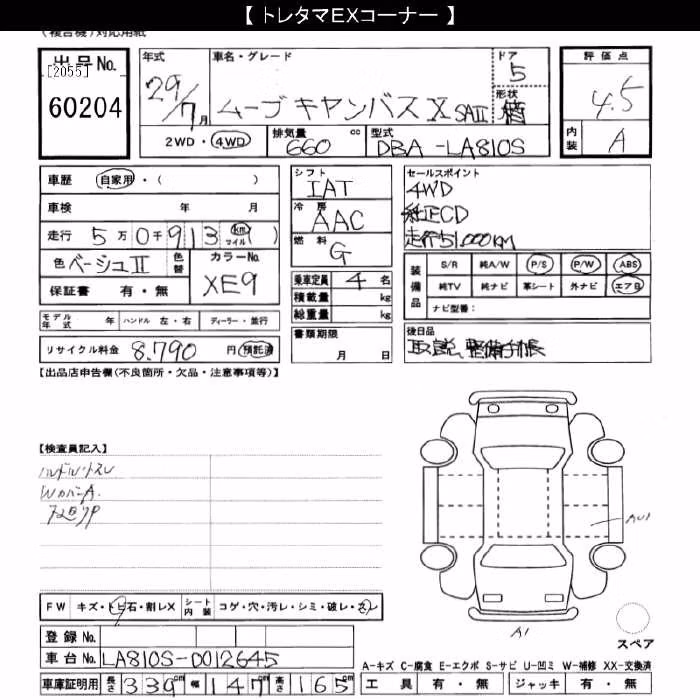 【 トレタマEXコーナー 】
(複合機)対応用紙
出品No.
[2055]
60204
年式
29/7月
車名・グレード
ムーブキャンバス X SAⅡ
ドア
5
形状
箱
評価点
4.5
内装
A
2WD・4WD
排気量
660 cc
型式
DBA-LA810S
車歴 自家用・( )
車検 年 月
走行 5万0千913 km マイル ( )
色 ベージュⅡ 色替
カラーNo.
XE9
保証書 有・無
モデル年式 年 ハンドル 左・右 ディーラー・並行
リサイクル料金 8,790 円 預託済
シフト
IAT
冷房
AAC
燃料
G
乗車定員 4 名
積載量 kg
総重量 kg
書類期限
月 日
セールスポイント
4WD
純正CD
走行51,000KM
装備品
S/R 純A/W P/S P/W ABS
純TV 純ナビ 革シート 外ナビ エアB
ナビ型番:
後日品
取説、整備手帳
【出品店申告欄(不良箇所・欠品・注意事項等)】
【検査員記入】
ハンドルスレ
WカバーA
AU1
A1
スペア
FW キズ・トビ石・割レX シート内装 コゲ・穴・汚レ・シミ・破レ・スレ
登録No.
車台No. LA810S-0012645
車庫証明用 長さ 339cm 幅 147cm 高さ 165cm
A-キズ C-腐食 E-エクボ S-サビ U-凹ミ W-補修 XX-交換済
工具 有・無 ジャッキ 有・無